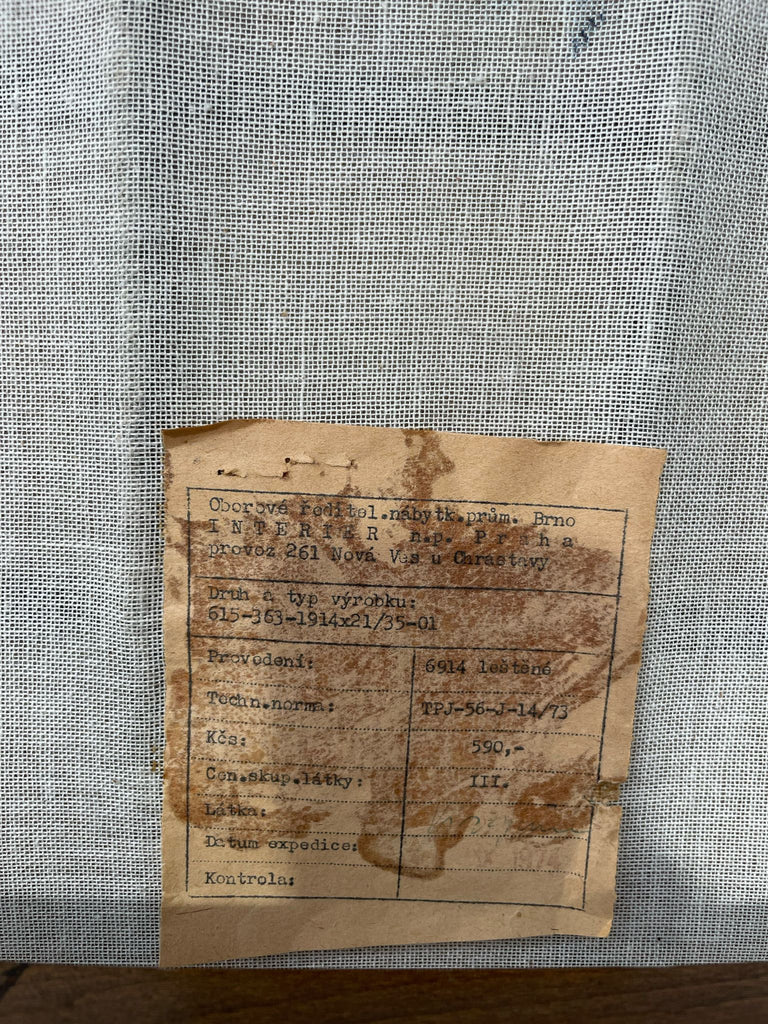 Oborové ředitel.nábytk.prům. Brno
I N T E R I E R n.p. P r a h a
provoz 261 Nová Ves u Chrastavy
Druh a typ výrobku:
615-363-1914x21/35-01
Provedení: 6914 leštěné
Techn.norma: TPJ-56-J-14/73
Kčs: 590,-
Cen.skup.látky: III.
Látka:
Datum expedice: 1974
Kontrola: